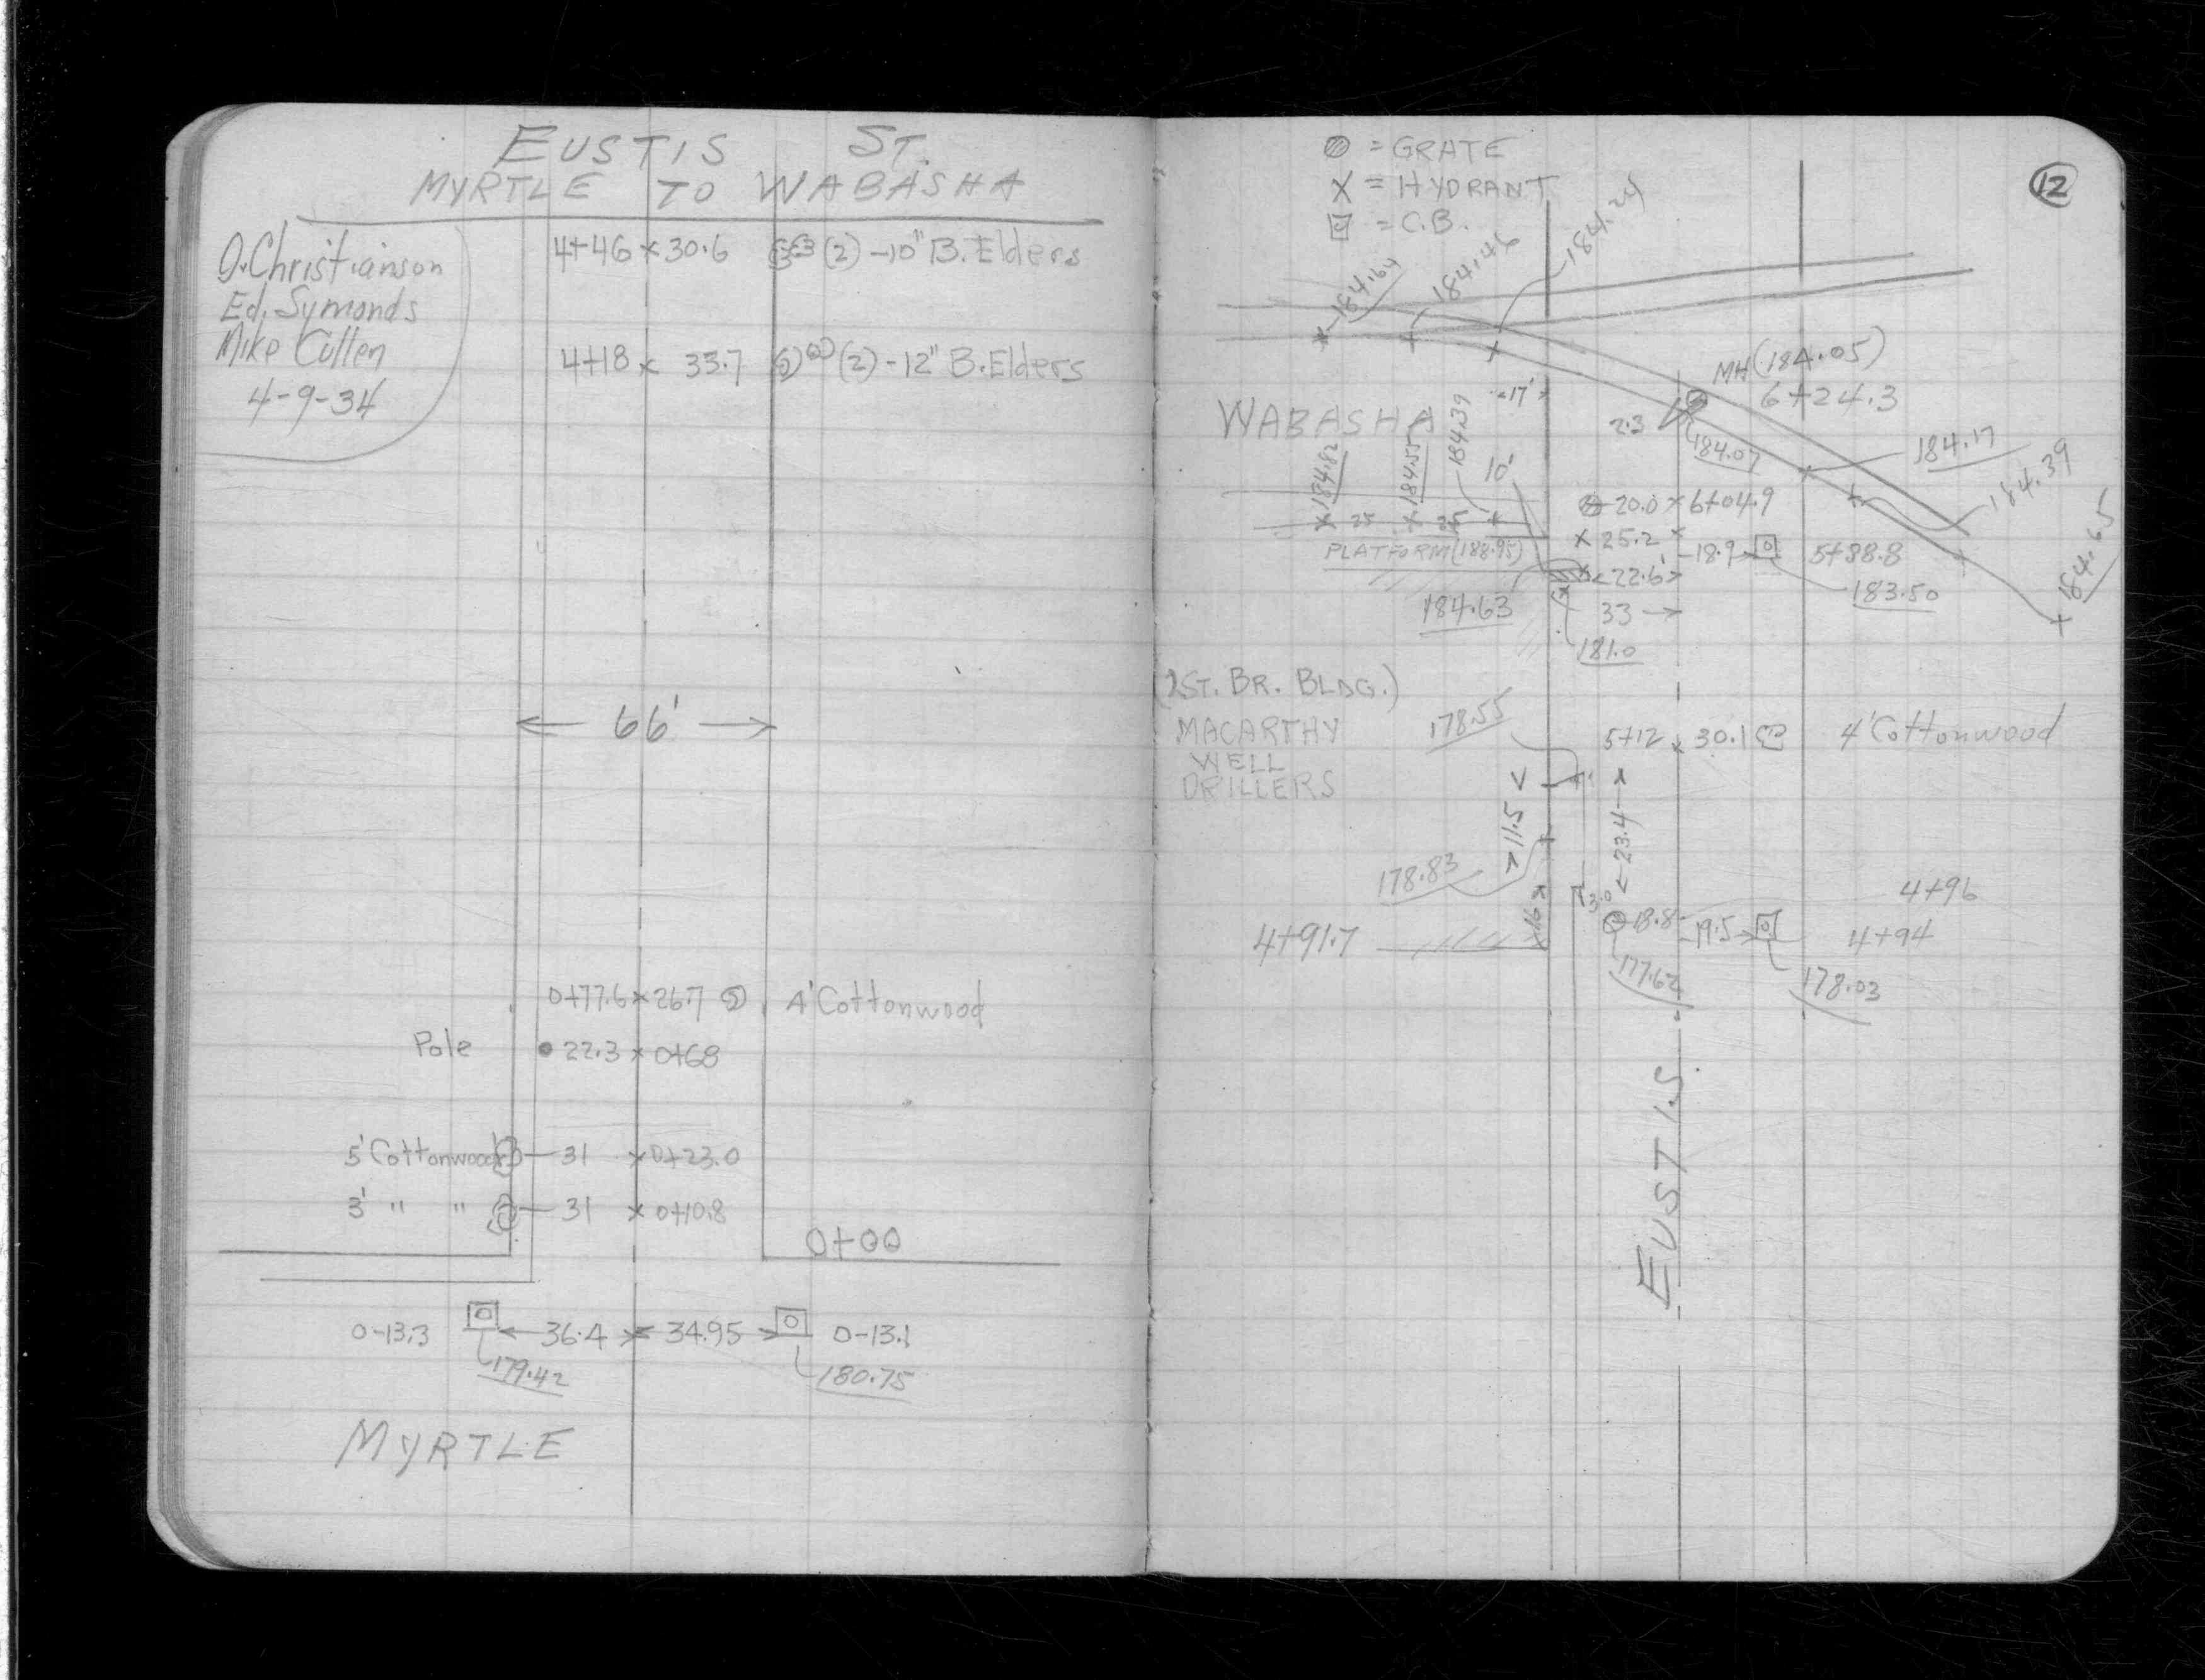 EUSTIS ST.
MYRTLE TO WABASHA
O. Christianson
Ed. Symonds
Mike Cullen
4-9-34
4+46 x 30.6 (2) -10" B. Elders
4+18 x 33.7 (2) -12" B. Elders
← 66' →
0+77.6 x 26.7 4' Cottonwood
Pole 22.3 x 0+68
5' Cottonwood 31 x 0+23.0
3' " " 31 x 0+10.8
0+00
0-13.3 36.4 34.95 0-13.1
179.42 180.75
MYRTLE
12
= GRATE
X = HYDRANT
= C.B.
184.64
184.46
184.24
MH (184.05)
6+24.3
17'
2.3
184.07
184.17
184.39
184.65
WABASHA
184.82
184.55
184.39
10'
25 25
20.0 x 6+04.9
x 25.2 x
18.9 5+88.8
183.50
PLATFORM (188.95)
22.6'
184.63
33 →
181.0
(1 ST. BR. BLDG.)
MACARTHY
WELL
DRILLERS
178.55
5+12 x 30.1 4' Cottonwood
11.5
23.4
178.83
16
3.0
4+96
4+91.7
18.8
19.5 4+94
177.62
178.03
EUSTIS